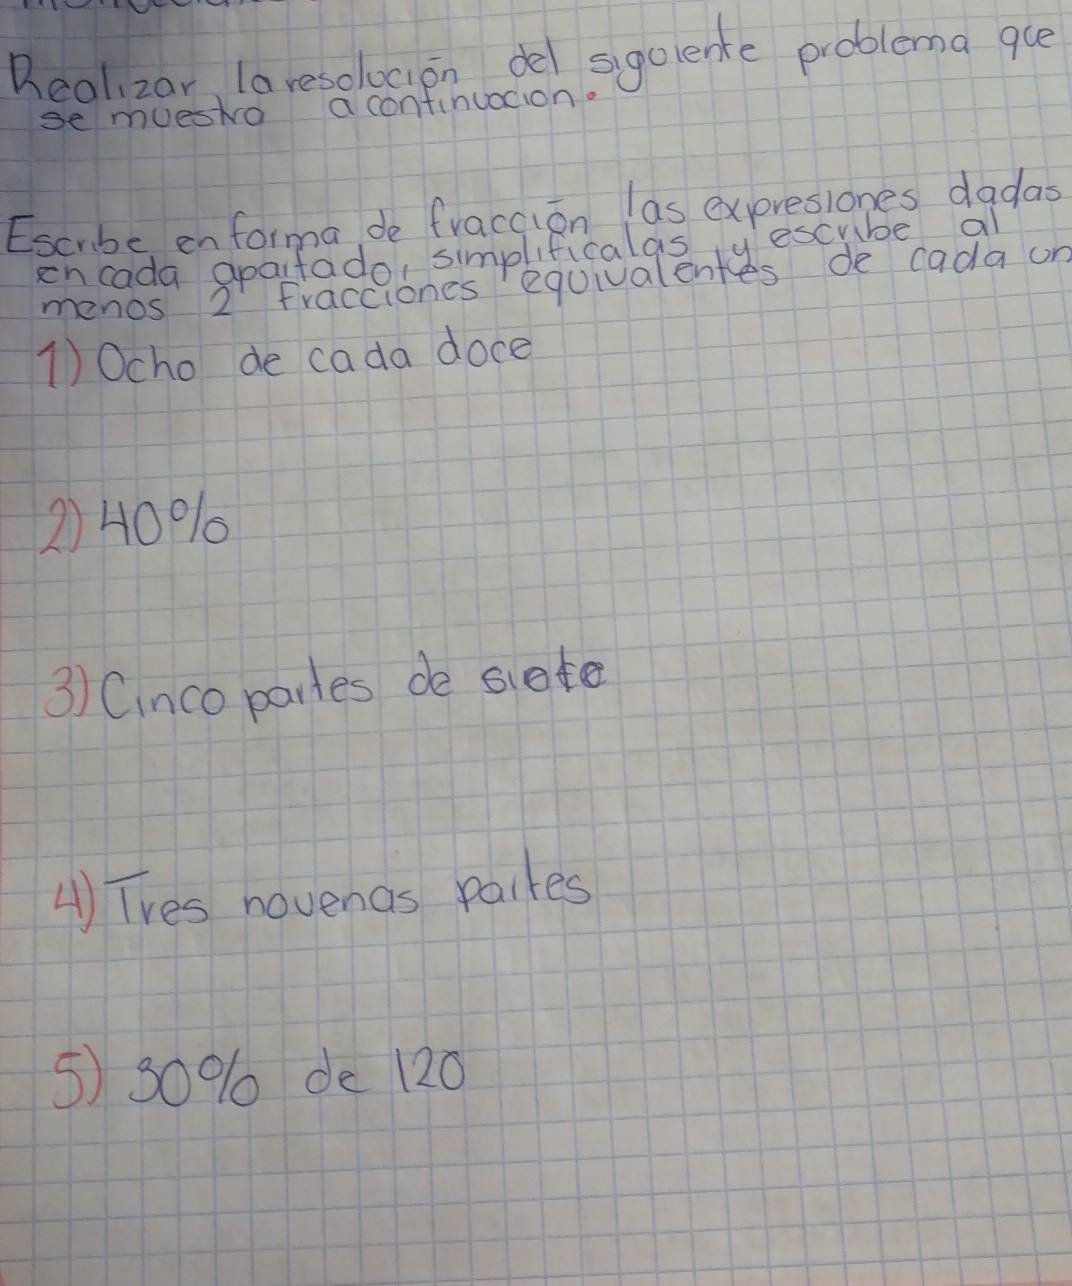 Realizar la resolución del siguiente problema que
se muestra a continuacion.
Escribe en forma de fracción las expresiones dadas
en cada apartado, simplificalas y escribe al
menos 2 fracciones equivalentes de cada un
1) Ocho de cada doce
2) 40%
3) Cinco partes de siete
4) Tres novenas partes
5) 30% de 120